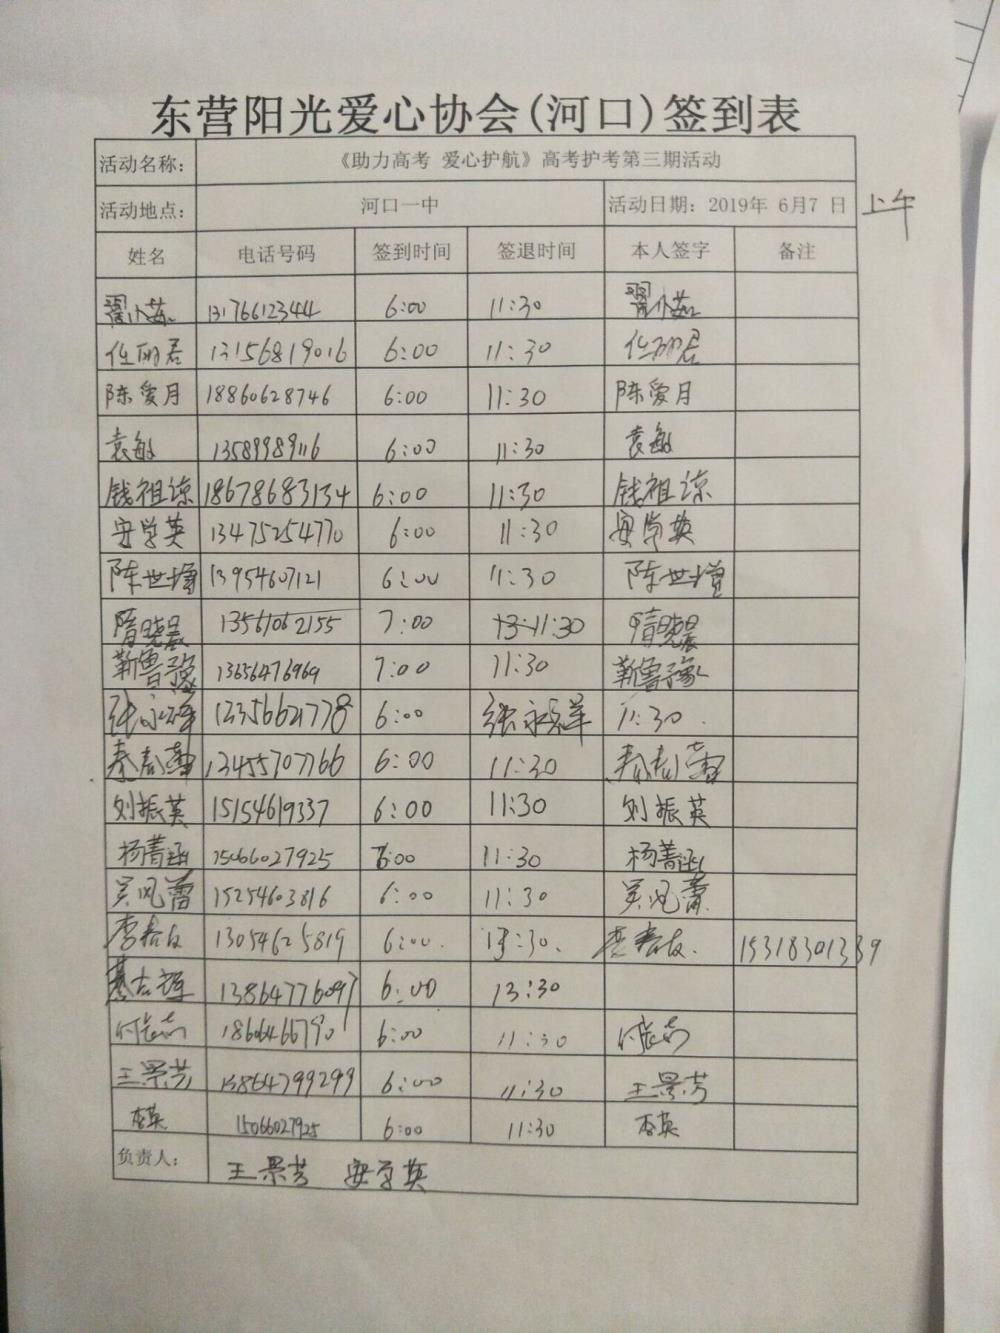 东营阳光爱心协会(河口)签到表
活动名称： 《助力高考 爱心护航》高考护考第三期活动
活动地点： 河口一中 活动日期：2019年 6月7 日 上午
姓名 电话号码 签到时间 签退时间 本人签字 备注
13176612344 6:00 11:30
任丽君 13156819016 6:00 11:30 任丽君
陈爱月 18860628746 6:00 11:30 陈爱月
袁敏 13589989116 6:00 11:30 袁敏
钱祖谅 18678683134 6:00 11:30 钱祖谅
安学英 13475254770 6:00 11:30 安学英
陈世增 13954607121 6:00 11:30 陈世增
隋晓晨 13561062155 7:00 11:30 隋晓晨
靳鲁豫 13656476969 7:00 11:30 靳鲁豫
张永祥 6:00 张永祥 11:30
秦 13455707766 6:00 11:30 秦
刘振英 15154619337 6:00 11:30 刘振英
杨菁函 15066027925 6:00 11:30 杨菁函
吴风蕾 15254603816 6:00 11:30 吴风蕾
李春友 13054625819 6:00 13:30 李春友 15318301339
13864776097 6:00 13:30
6:00 11:30
王景芳 13864799299 6:00 11:30 王景芳
李英 15066027925 6:00 11:30 李英
负责人： 王景芳 安学英